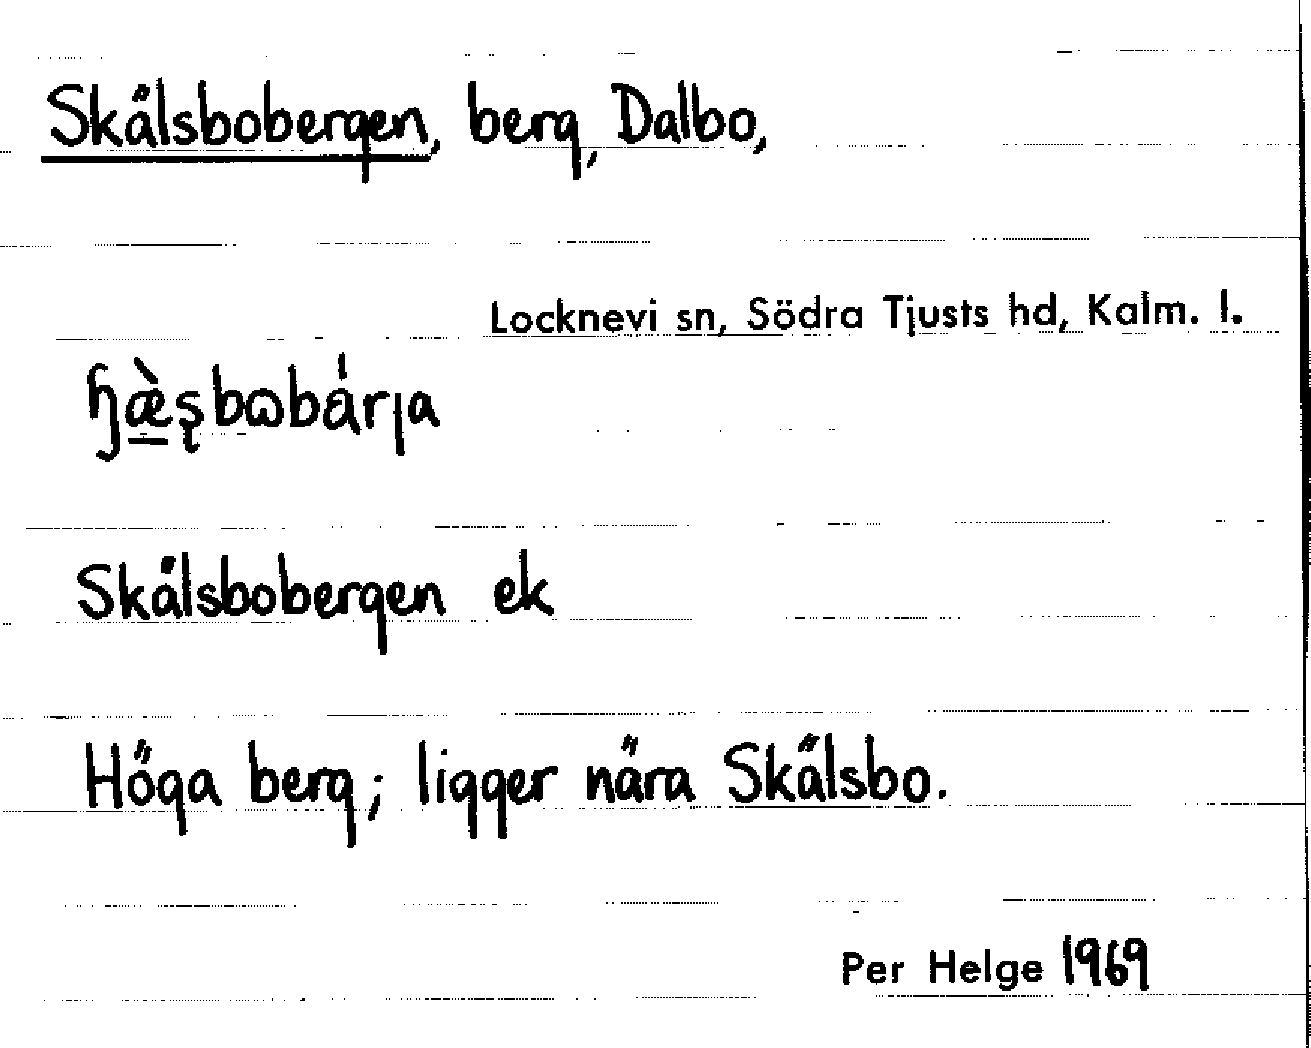 Skälsbobergen, berg, Dalbo,
Locknevi sn, Södra Tjusts hd, Kalm. l.
ɧæ̠̀ʂbɷbä́rȷa
Skälsbobergen ek
Höga berg; ligger nära Skälsbo.
Per Helge 1969